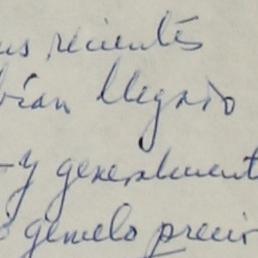 us recientes
bían llegado
-y generalment
gemelo precio